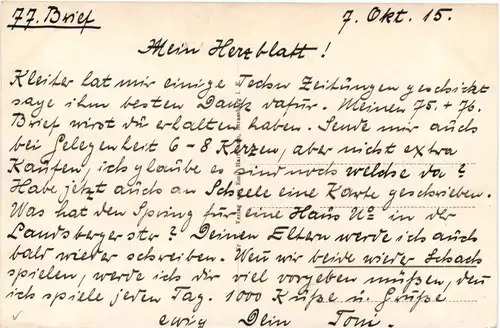 77. Brief 7. Okt. 15.
Mein Herzblatt!
Kleiter hat mir einige Zeitungen geschickt
sage ihm besten Dank dafür. Meinen 75. + 76.
Brief wirst du erhalten haben. Sende mir auch
bei Gelegenheit 6 - 8 Kerzen, aber nicht extra
Kaufen, ich glaube es sind noch welche da?
Habe jetzt auch an Scheele eine Karte geschrieben.
Was hat den Spring für eine Haus No in der
Landsbergerstr? Deinen Eltern werde ich auch
bald wieder schreiben. Wen wir beide wieder Schach
spielen, werde ich dir viel vorgeben müßen, den
ich spiele jeden Tag. 1000 Küße u. Grüße
ewig Dein Toni.